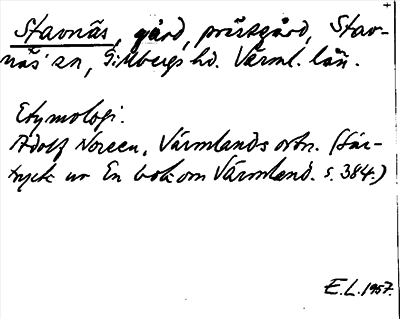 Stavnäs, gård, prästgård, Stav-
näs sn, Gillbergs hd. Värml. län.
Etymologi:
Adolf Noreen, Värmlands ortn. (Sär-
tryck ur En bok om Värmland. s. 384.)
E.L. 1957.